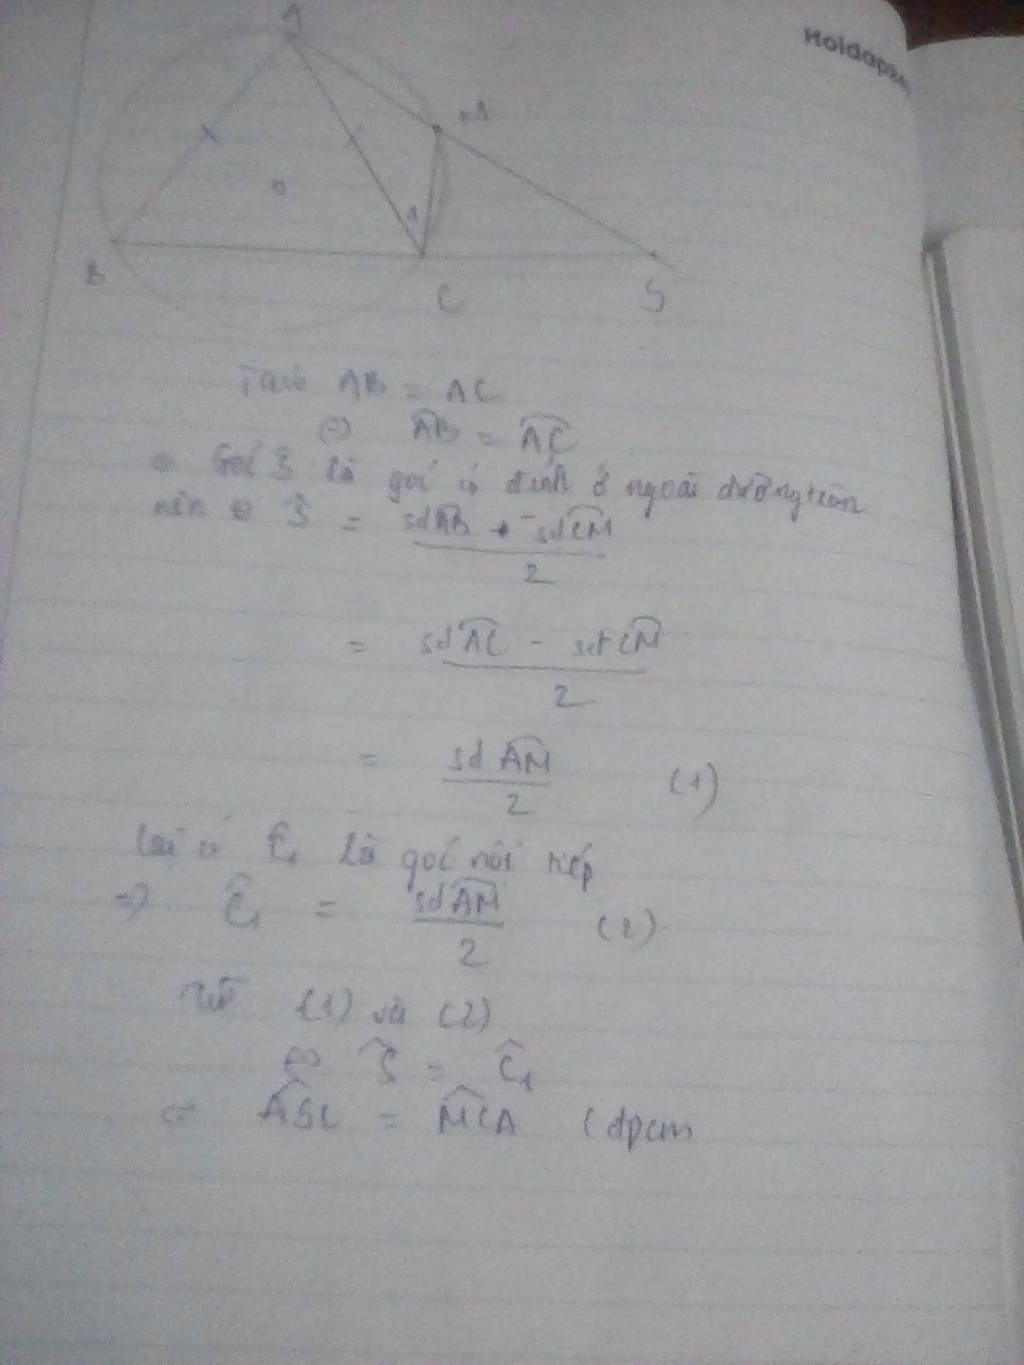 Hoidap247
A
M
1
O
B
C
S
Ta có AB = AC
(=) AB = AC
Góc S là góc có đỉnh ở ngoài đường tròn
nên S = sđAB - sđCM
2
= sđAC - sđCM
2
= sđAM (1)
2
Lại có C1 là góc nội tiếp
=) C1 = sđAM (2)
2
Từ (1) và (2)
S = C1
ASC = MCA (đpcm